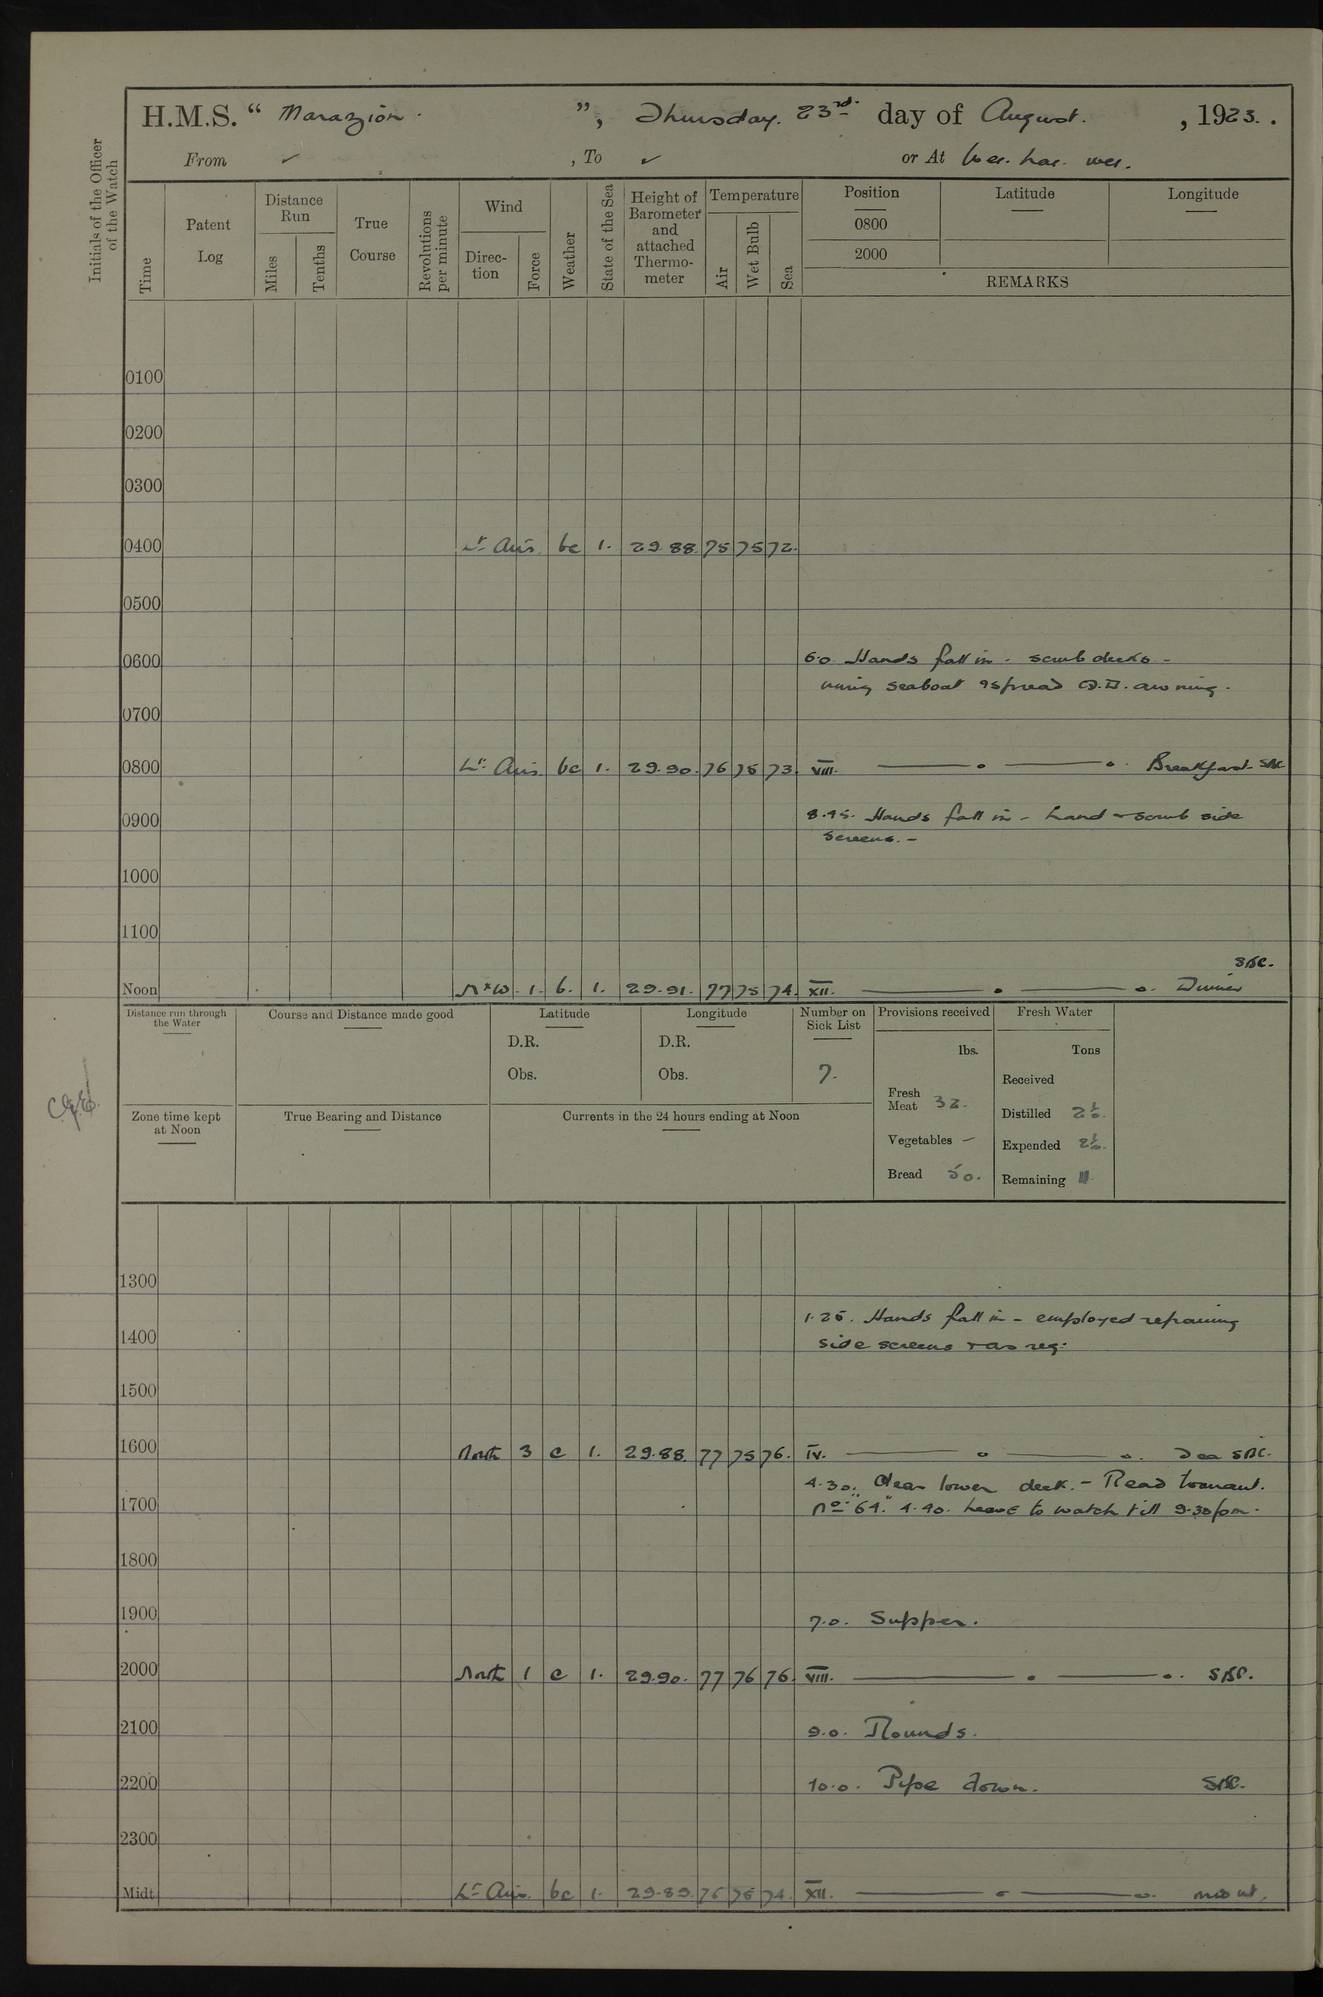 H.M.S. “ Marazion. ”, Thursday. 23rd. day of August. , 1923. .
From ✓ , To ✓ or At Wei. hai. wei.
Initials of the Officer of the Watch
Time
Patent Log
Distance Run
Miles
Tenths
True Course
Revolutions per minute
Wind
Direction
Force
Weather
State of the Sea
Height of Barometer and attached Thermometer
Temperature
Air
Wet Bulb
Sea
Position
0800
2000
Latitude
Longitude
REMARKS
0100
0200
0300
0400 Lt Airs. bc 1. 29.88. 75 75 72.
0500
0600 6.0 Hands fall in - scrub decks -
seaboat & spread Q.D. awning.
0700
0800 Lt. Airs. bc 1. 29.90. 76 75 73. VIII. Breakfast. SBC
0900 8.45. Hands fall in - Land & scrub side
screens. -
1000
1100
SBC.
Noon NxW. 1. b. 1. 29.91. 77 75 74. XII. Dinner
Distance run through the Water
Course and Distance made good
Latitude
D.R.
Obs.
Longitude
D.R.
Obs.
Number on Sick List
7.
Provisions received
lbs.
Fresh Meat 32.
Vegetables —
Bread 50.
Fresh Water
Tons
Received
Distilled 2½.
Expended 2½.
Remaining 11.
Zone time kept at Noon
True Bearing and Distance
Currents in the 24 hours ending at Noon
1300
1.25. Hands fall in - employed repairing
1400 side screens & as req.
1500
1600 North 3 c 1. 29.88. 77 75 76. IV. Tea SBC.
4.30. Clear lower deck. - Read Warrant.
1700 No. "64." 4.40. Leave to watch till 9.30pm.
1800
1900 7.0. Supper.
2000 North 1 c 1. 29.90. 77 76 76. VIII. SBC.
2100 9.0. Rounds.
2200 10.0. Pipe down. SBC.
2300
Midt. Lt Airs. bc 1. 29.89. 76 75 74. XII.